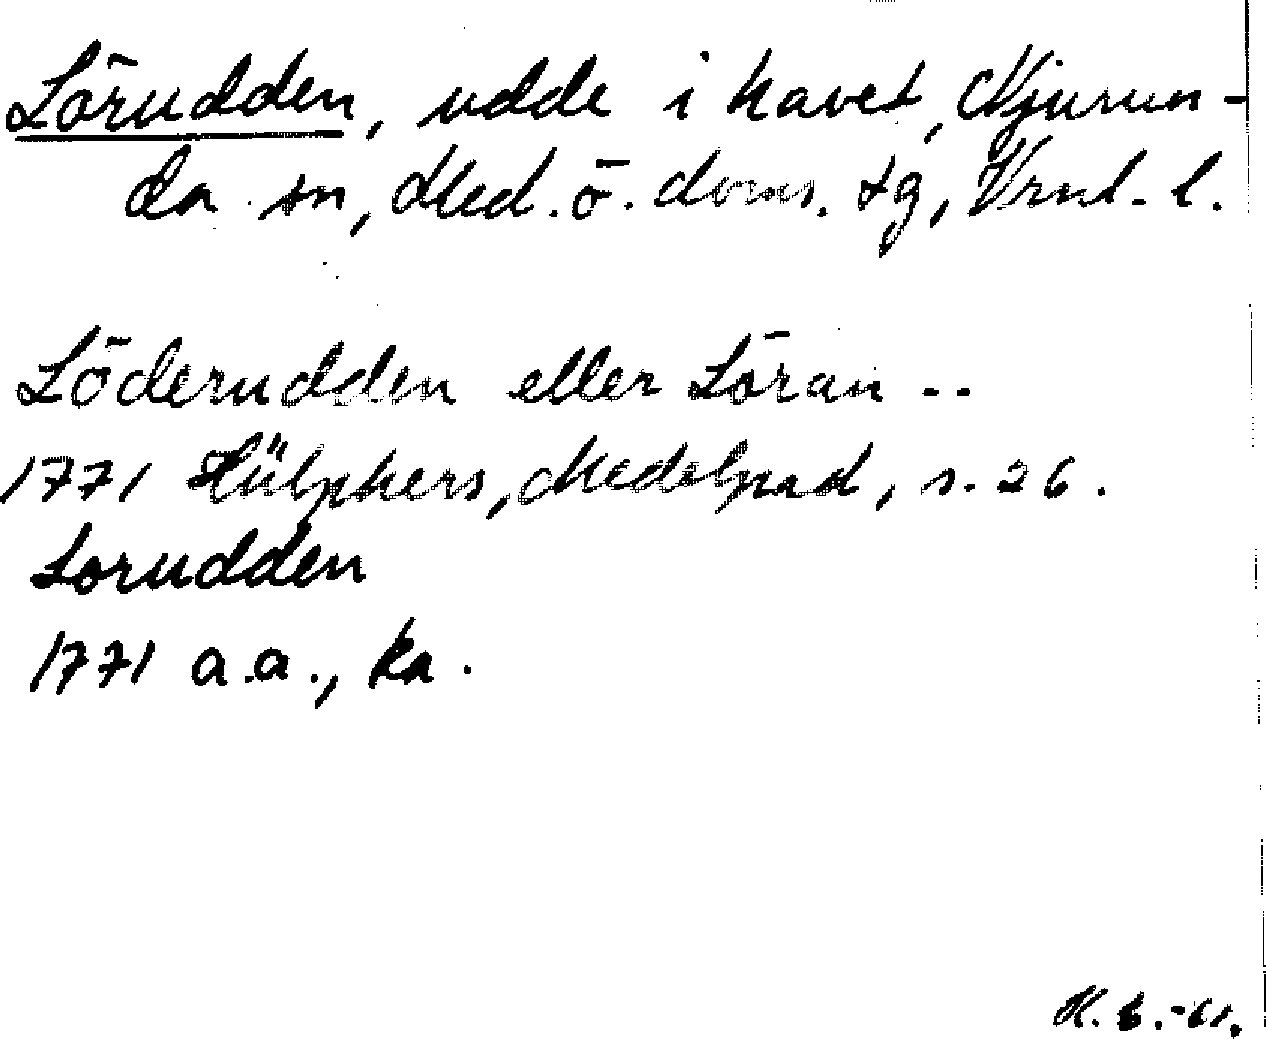 Lörudden, udde i havet, Njurun-
da sn, Med. ö. doms. tg, Vrnl. l.
Löderudden eller Löran --
1771 Hülphers, Medelpad, s. 26.
Lorudden
1771 a.a., ka.